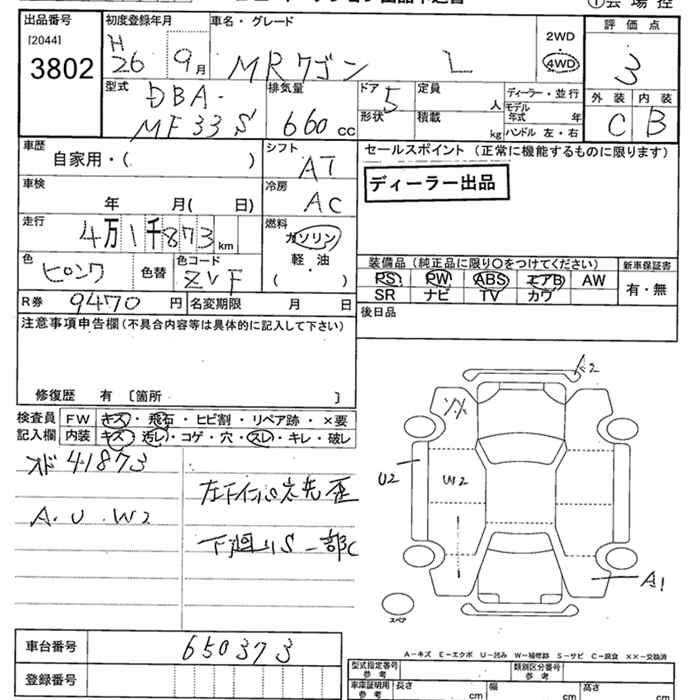 ①会場控
出品番号 初度登録年月 車名・グレード 評価点
[2044] 3802
H26 9月 MRワゴン L 2WD 4WD 3
型式 DBA-MF33S 排気量 660cc ドア 5 形状 定員 人 積載 kg
ディーラー・並行 モデル年式 年 ハンドル 左・右
外装 C 内装 B
車歴 自家用・( )
シフト AT
セールスポイント(正常に機能するものに限ります)
ディーラー出品
車検 年 月( 日)
冷房 AC
走行 4万1千873km
燃料 ガソリン 軽・油 ( )
色 ピンク 色替 色コード ZVF
装備品(純正品に限り〇をつけてください) 新車保証書
PS PW ABS エアB AW 有・無
SR ナビ TV カワ
R券 9470円 名変期限 月 日
後日品
注意事項申告欄(不具合内容等は具体的に記入して下さい)
修復歴 有 [箇所 ]
検査員 FW キズ・飛石・ヒビ割・リペア跡・×要
記入欄 内装 キズ・汚レ・コゲ・穴・スレ・キレ・破レ
メド 41873
A. U. W2
下廻りS 一部C
A2
U2
W2
A1
スペア
A-キズ E-エクボ U-凹み W-補修跡 S-サビ C-腐食 ××-交換済
車台番号 650373
登録番号
型式指定番号 参考 類別区分番号 参考
車庫証明用 参考 長さ cm 幅 cm 高さ cm